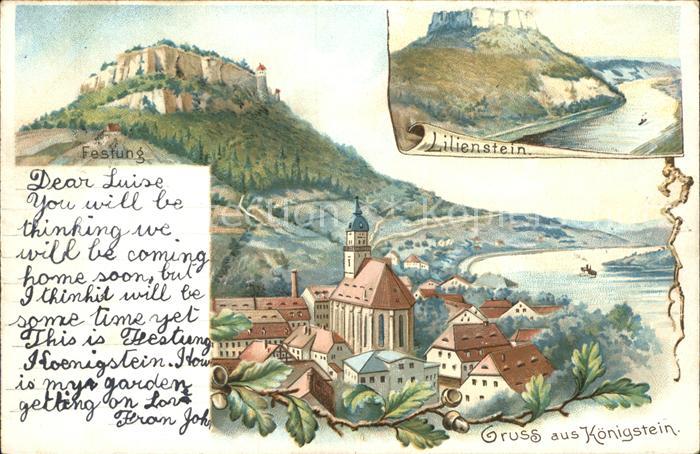 Festung.
Lilienstein.
Dear Luise
You will be
thinking we
will be coming
home soon, but
I thinkit will be
some time yet
This is Festung
Koenigstein. How
is my garden
getting on Love
Fran Joh
Gruss aus Königstein.